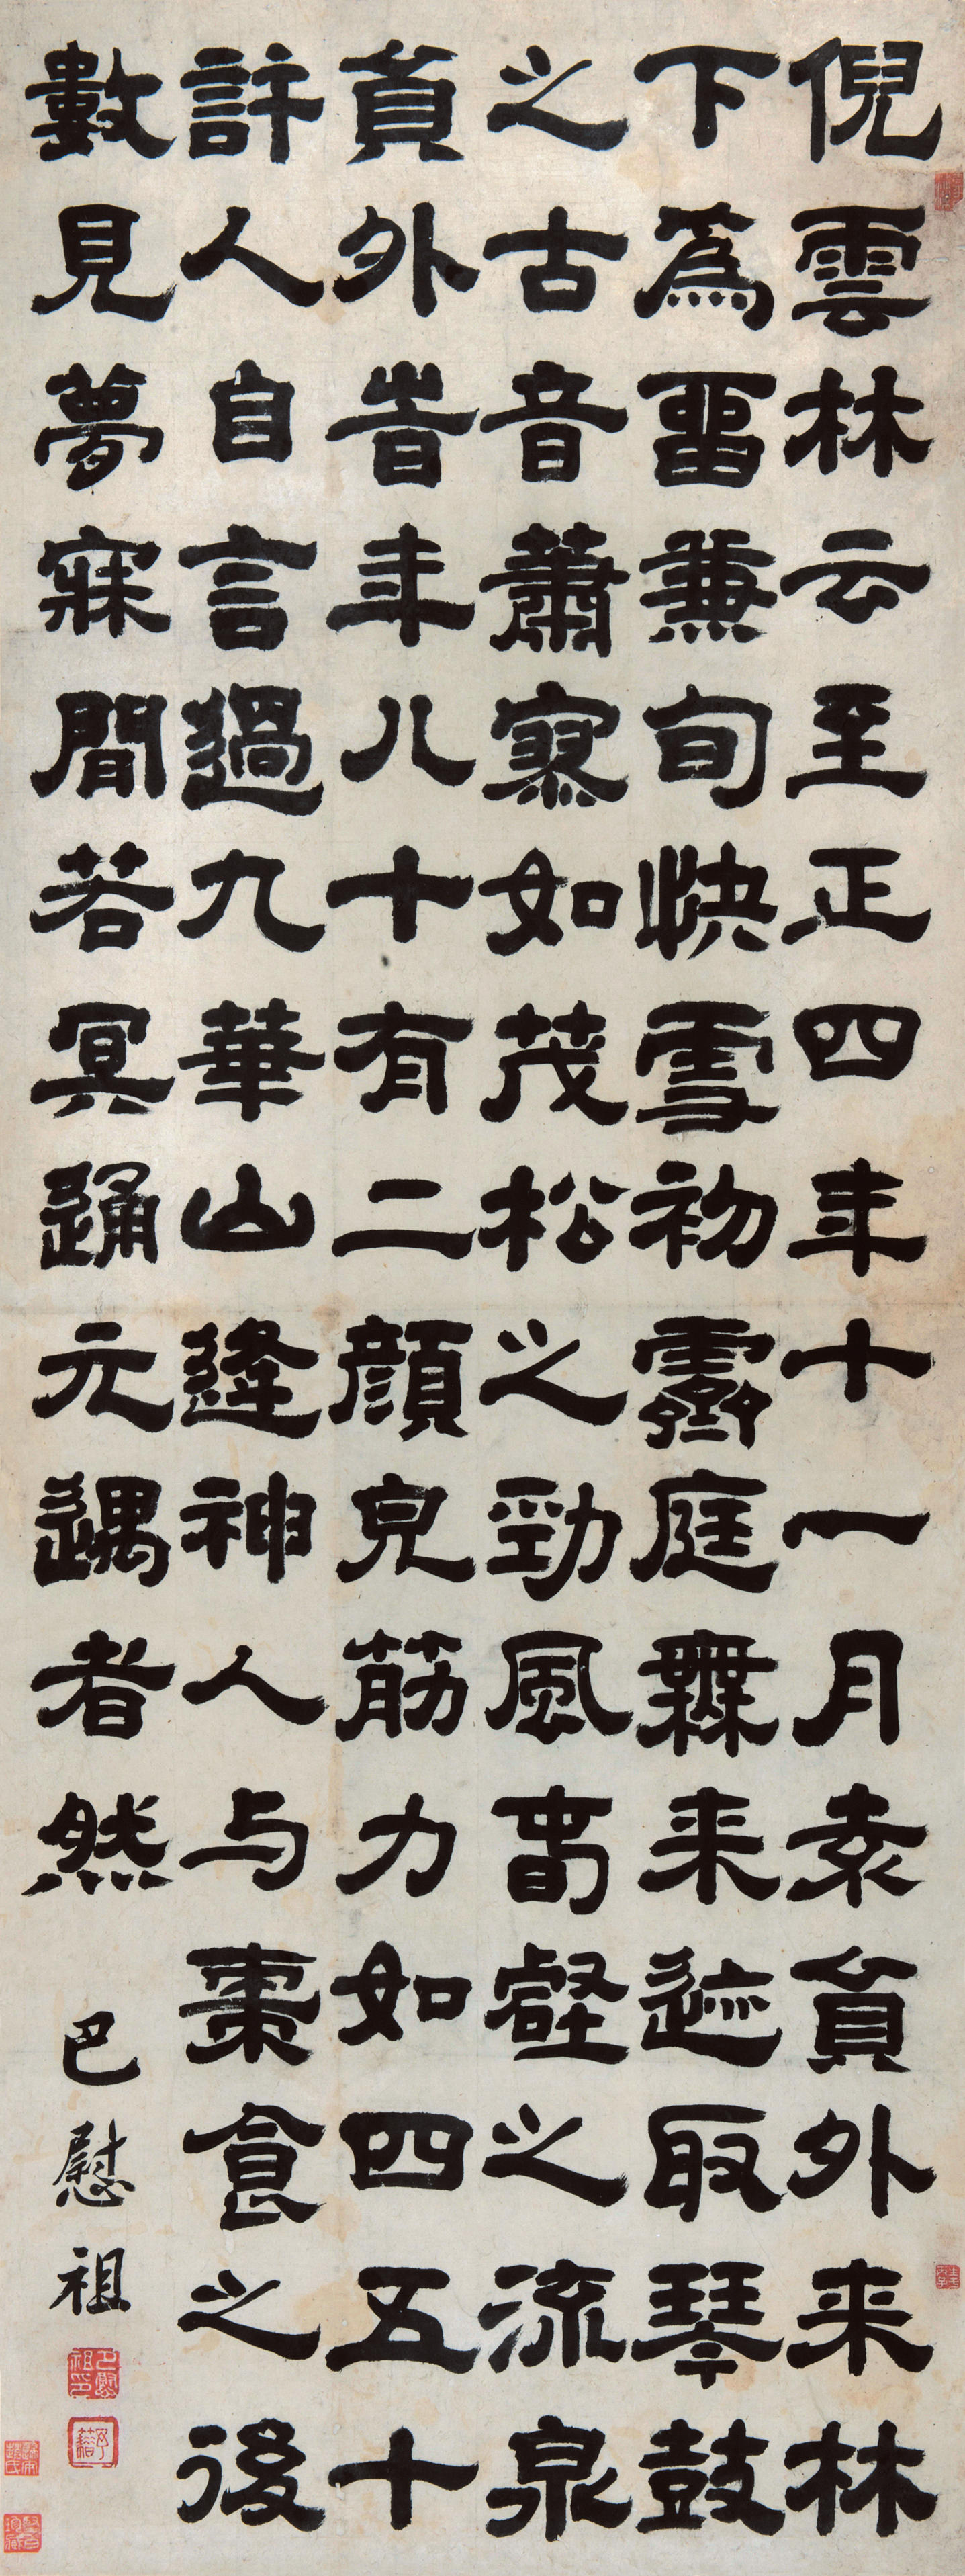 倪雲林云至正四年十一月袁員外来林
下為畱兼旬快雪初霽庭無来迹取琴鼓
之古音蕭寥如茂松之勁風春壑之流泉
員外昔年八十有二顏皃筋力如四五十
許人自言過九華山逢神人与棗食之後
數見夢寐間若冥踊元遇者然
巴慰祖
巴慰祖印